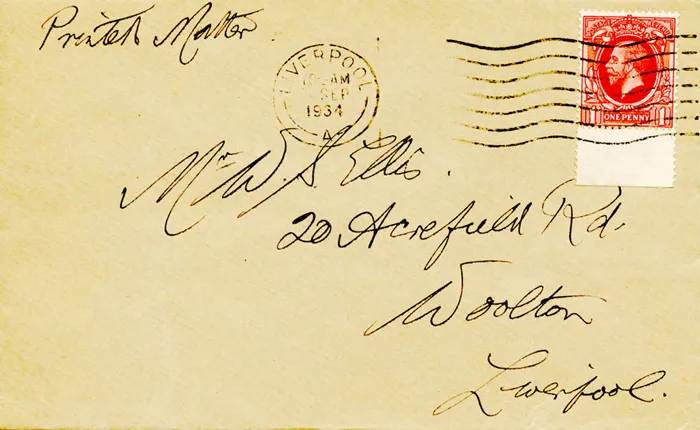 Printed Matter
LIVERPOOL
AM
SEP
1934
A
ONE PENNY
Mr W. S. Ellis.
20 Acrefield Rd.
Woolton
Liverpool.